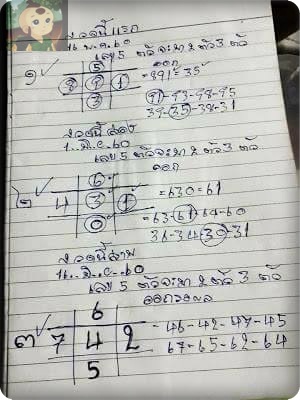 งวดนี้แรก
16..พ.ค.60
เลข 5 ตัวจะมา 2 ตัว 3 ตัว
ออก
๑ 5
8 9 1 = 891 = 35
3
91-93-98-95
39-35-38-31
งวดนี้สอง
1...มิ.ย-60
เลข 5 ตัวจะมา 2 ตัว 3 ตัว
ออก
๒ 6
4 3 1 = 630 = 61
0
= 63-61-64-60
36-34-30-31
งวดนี้สาม
16...มิ.ย-60
เลข 5 ตัวจะมา 2 ตัว 3 ตัว
๓ 6
7 4 2 - 46-42-47-45
5 67-65-62-64